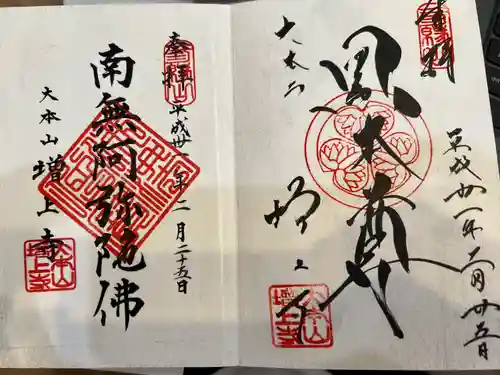 奉拝
平成卅一年二月廿五日
黒本尊
大本山
増上寺
奉拝
平成卅一年二月二十五日
南無阿弥陀佛
大本山
増上寺